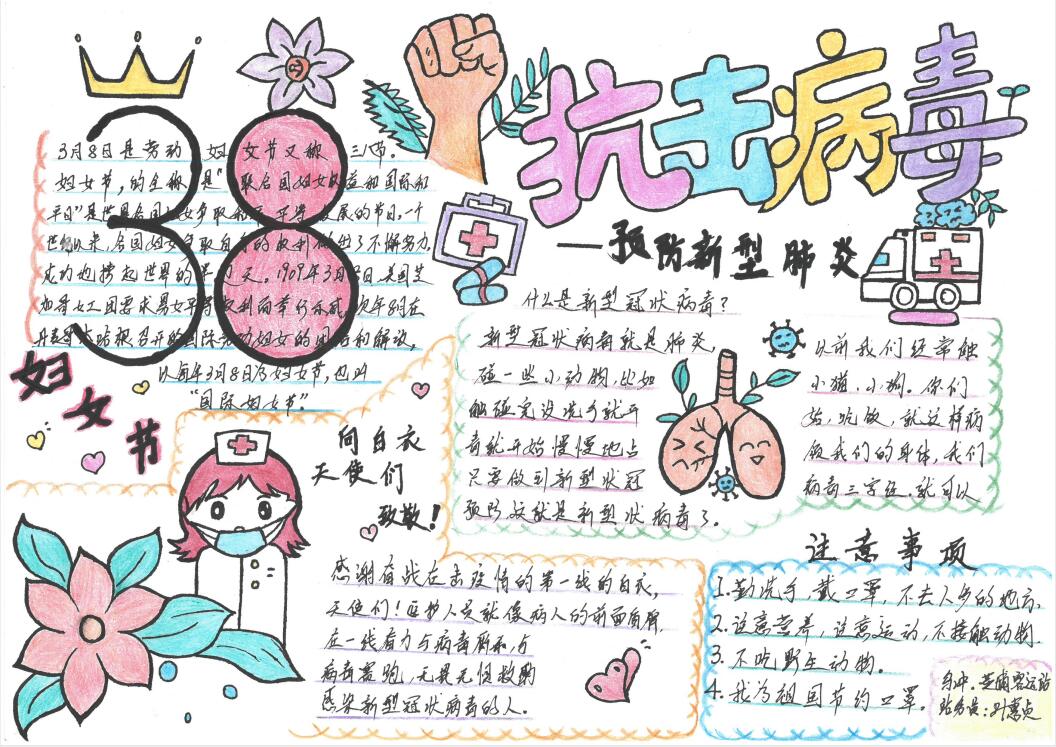 抗击病毒
—预防新型肺炎
3月8日是劳动妇女节又称三八节。
妇女节，的全称是“联合国妇女权益和国际和
平日”是世界各国妇女争取和平、平等、发展的节日。一个
世纪以来，各国妇女争取自身的权利做出了不懈努力
1909年3月8日，美国芝
加哥女工因要求男女平等权利而举行示威，次年8月在
丹麦哥本哈根召开的国际劳动妇女的
和解放，
以每年3月8日为妇女节，也叫
“国际妇女节”。
38
妇女节
向白衣
天使们
致敬！
什么是新型冠状病毒？
新型冠状病毒就是肺炎，
碰一些小动物，比如
触碰完没洗手就开
奇就开始慢慢地占
只要做到新型状冠
预防 这就是新型状病毒了。
以前我们经常触
小猫、小狗。你们
就这样病
我们的身体，我们
病毒三字经，就可以
感谢奋战在击疫情的第一线的白衣，
天使们！医护人员就像病人的前面
在一线奋力与病毒
病毒赛跑，无畏无惧救助
感染新型冠状病毒的人。
注意事项
1.勤洗手，戴口罩，不去人多的地方.
2.注意营养，注意运动，不接触动物.
3.不吃野生动物.
4.我为祖国节约口罩.
客运站
站务员：叶惠贞